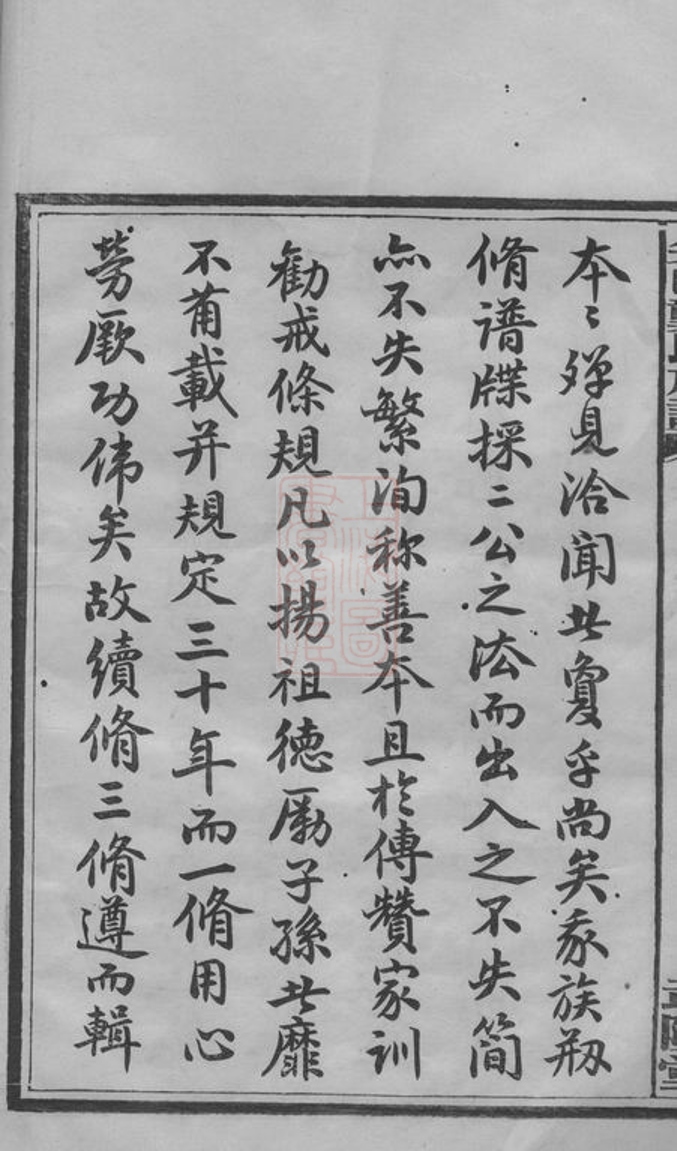 本〻殫見洽聞其夐乎尚矣我族刱
脩譜牒採二公之法而出入之不失簡
亦不失繁洵称善本且於傳贊家訓
勸戒條規凡以揚祖德勵子孫者靡
不莆載并規定三十年而一脩用心
勞厥功偉矣故續脩三脩遵而輯